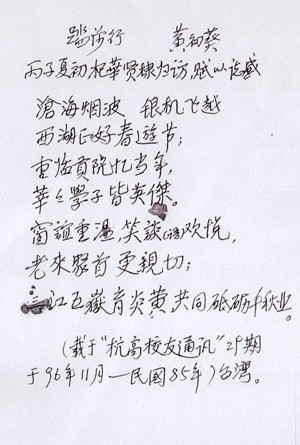 踏莎行 黄幼葵
丙子夏初杞華贤棣归访,赋以誌感
滄海烟波 银机飞越
西湖正好春遊节;
重临貢院忆当年,
莘々學子皆英傑。
窗誼重温,笑談欢悦,
老來聚首更親切;
三江五嶽育炎黄,共同砥砺千秋业。
(載于“杭高校友通讯”29期
于96年11月—民國85年)台湾。